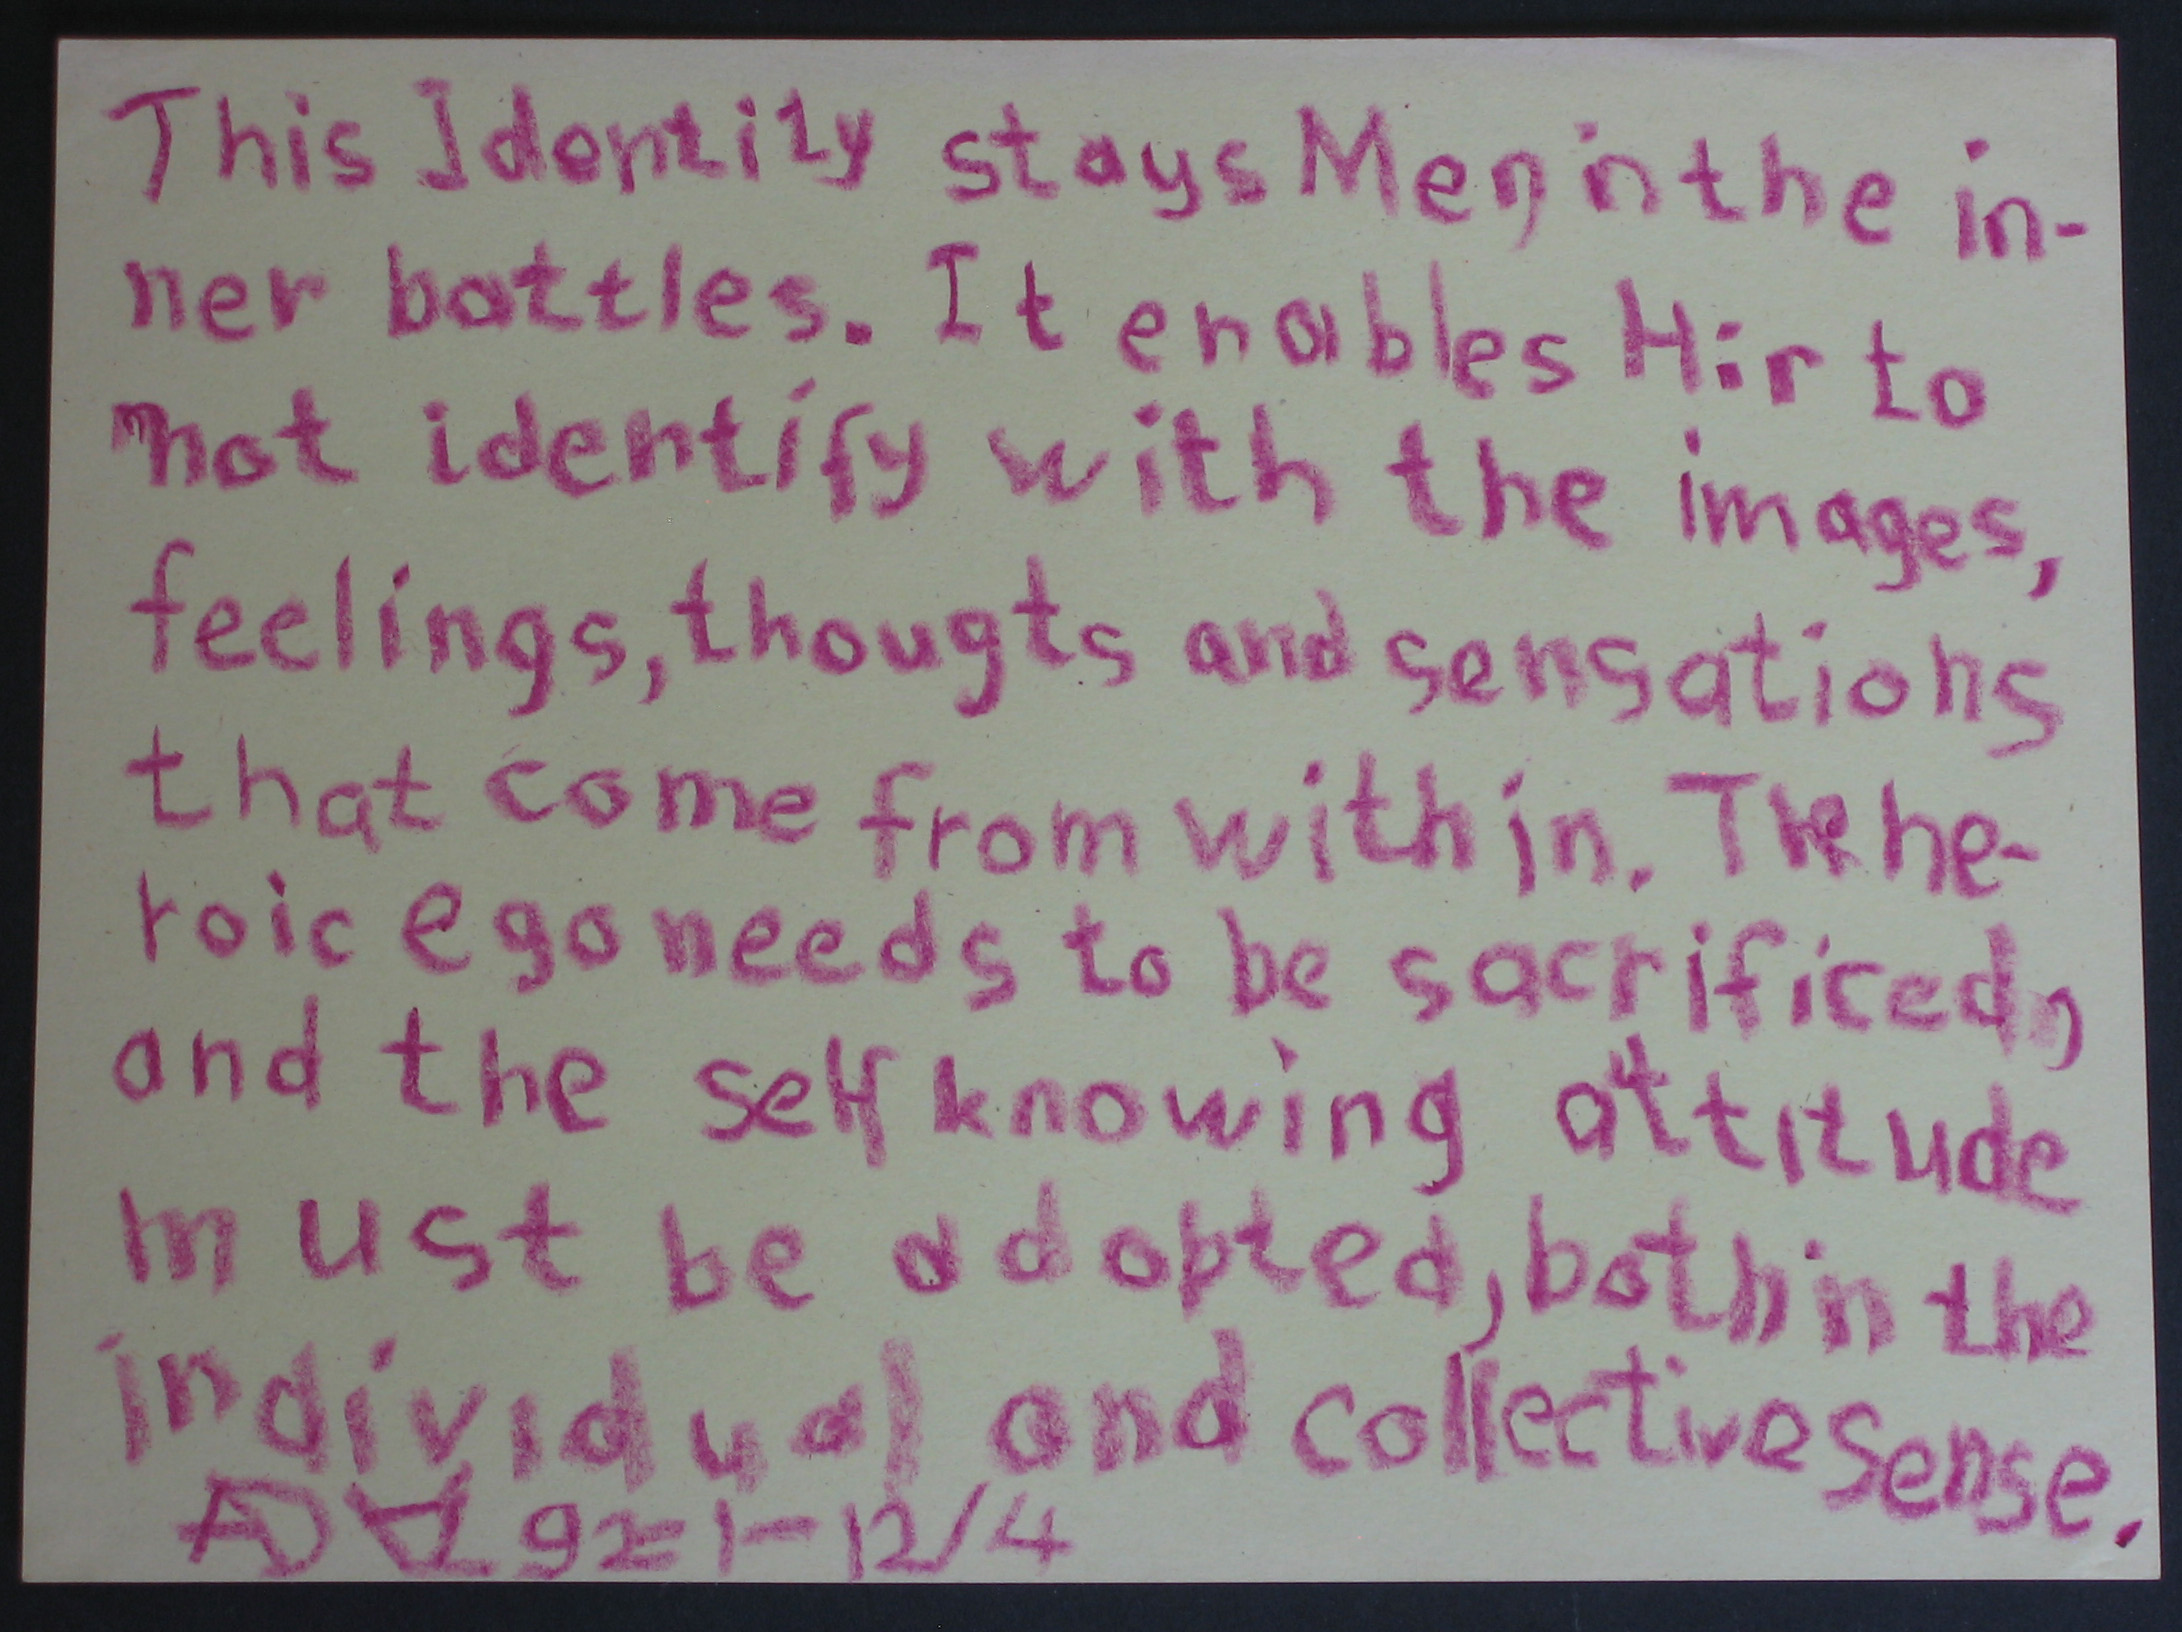 This Identity stays Men in the in-
ner battles. It enables Hir to
not identify with the images,
feelings, thougts and sensations
that come from within. The he-
roic ego needs to be sacrificed,
and the self knowing attitude
must be adopted, both in the
individual and collective sense.
92 1-12/4